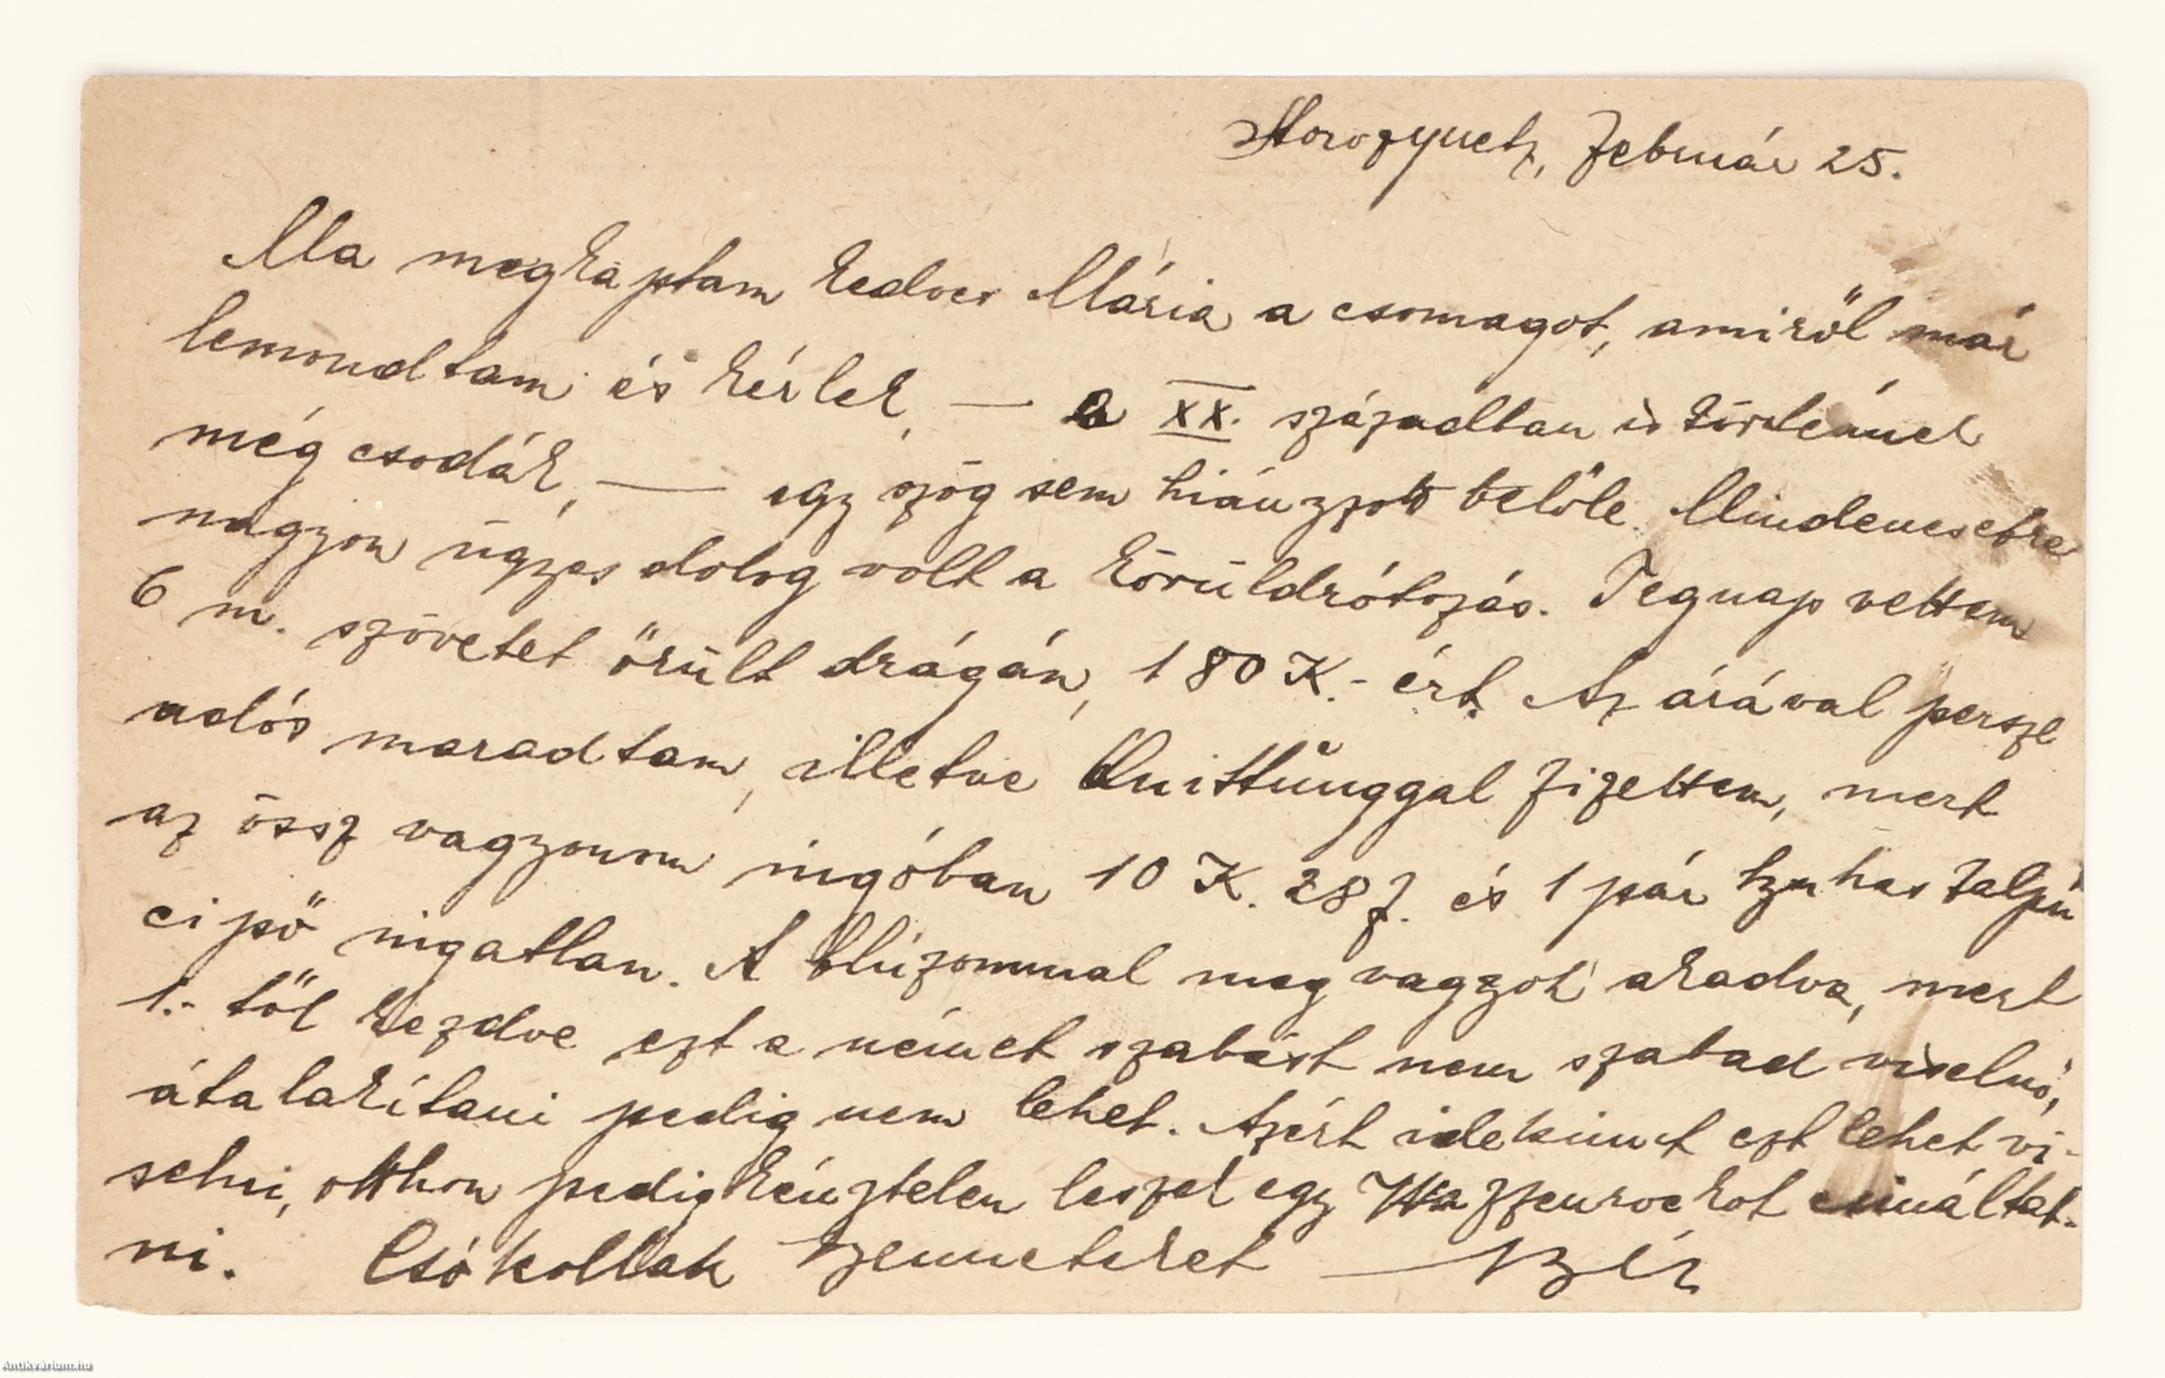 Storozynetz, Február 25.
Ma megkaptam kedves Mária a csomagot, amiről már
lemondtam és kérlek, — a XX. században is történnek
még csodák, — egy szög sem hiányzott belőle. Mindenesetre
nagyon ügyes dolog volt a körüldrótozás. Tegnap vettem
6 m. szövetet örült drágán, 180 K.- ért. Az árával persze
adós maradtam, illetve Quittunggal fizettem, mert
az össz vagyonom ingóban 10 K. 28 f. és 1 pár lyukas talpú
cipő ingatlan. A blúzommal meg vagyok akadva, mert
1.- től kezdve ezt a német szabást nem szabad viselni,
átalakítani pedig nem lehet. Azért idekünt ezt lehet vi-
selni, otthon pedig kénytelen leszel egy Waffenrockot csináltat-
ni. Csókollak benneteket — Bér
Antikvárium.hu